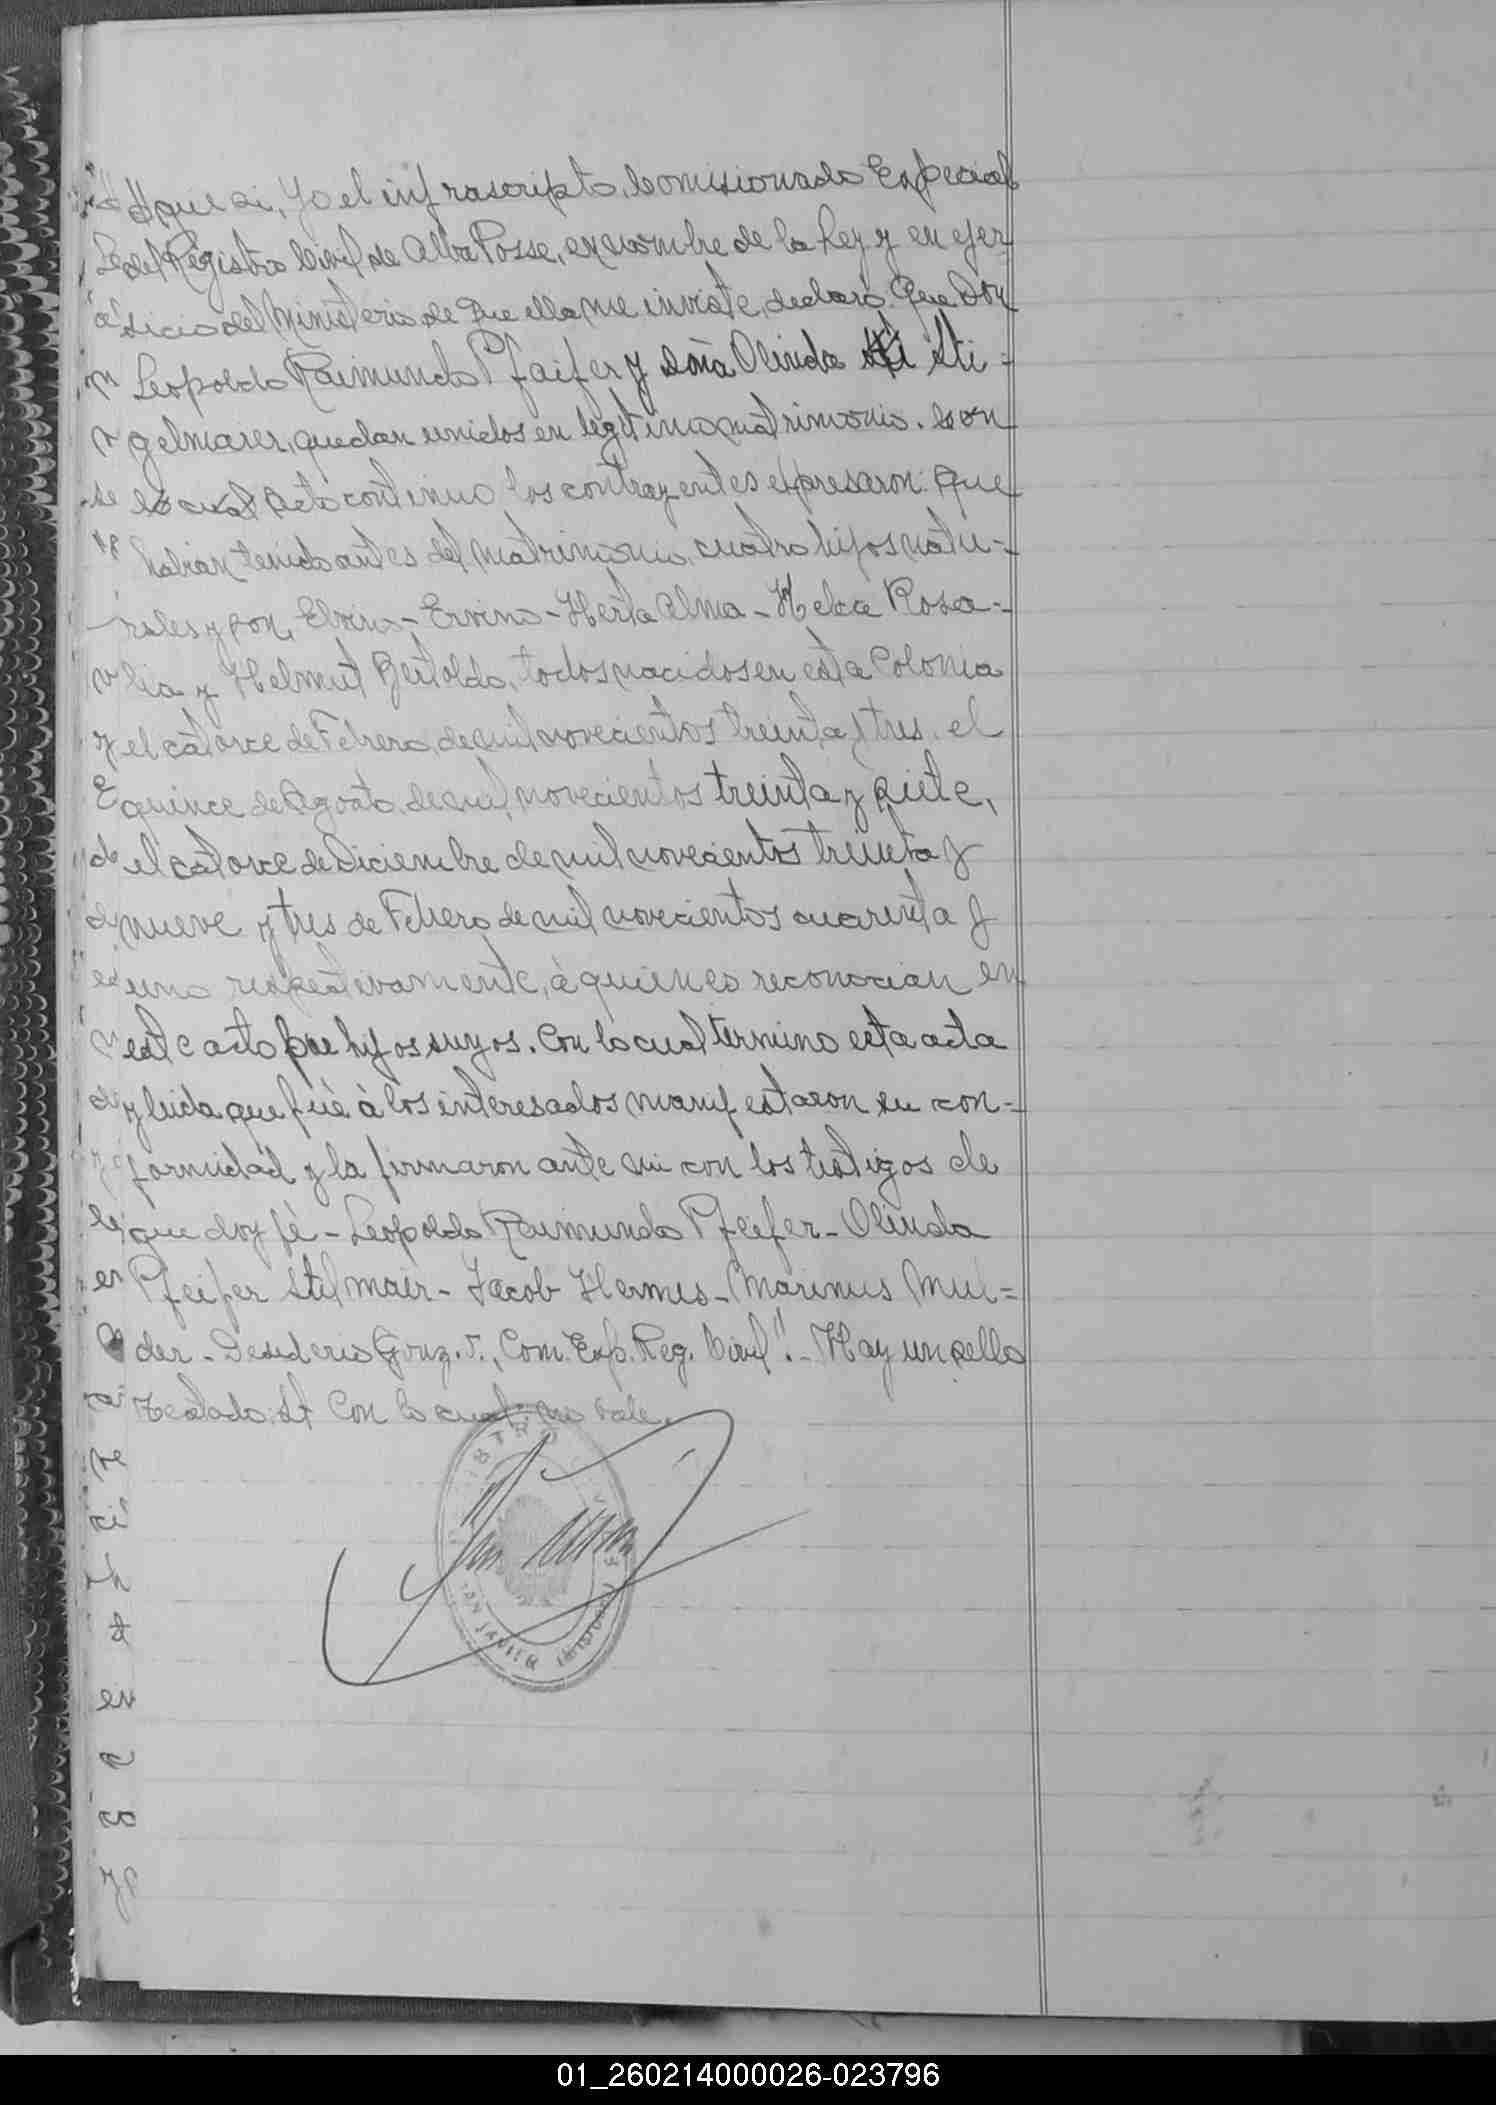 que si, Yo el infrascripto, Comisionado Especial
del Registro Civil de Alba Posse, en nombre de la Ley y en ejer
sicio del Ministerio de que ella me inviste, declaro: Que Don
Leopoldo Raimundo Pfaifer y doña Olinda Sti=
gelmaier, quedan unidos en legitimo matrimonio. Con
lo cual Acto continuo los contrayentes expresaron: Que
habian tenido antes del matrimonio, cuatro hijos natu=
rales y son, Elvira - Ervino - Herta Alma - Helca Rosa=
lia y Helmut Bertoldo, todos nacidos en esta Colonia
el catorce de Febrero de mil novecientos treinta y tres, el
quince de Agosto de mil novecientos treinta y siete,
el catorce de Diciembre de mil novecientos treinta y
nueve y tres de Febrero de mil novecientos cuarenta y
uno respectivamente, à quienes reconocian en
este acto por hijos suyos. Con lo cual termino esta acta
y leida que fué à los interesados manifestaron su con=
formidad y la firmaron ante mi con los testigos de
que doy fé - Leopoldo Raimundo Pfeifer - Olinda
Pfeifer Stilmair - Jacob Hermes - Marinus Mul=
der - Desiderio Gonz. T., Com. Esp. Reg. Civil". - Hay un sello
Testado: St Con lo cual: no vale.
SAN JAVIER
01_260214000026-023796